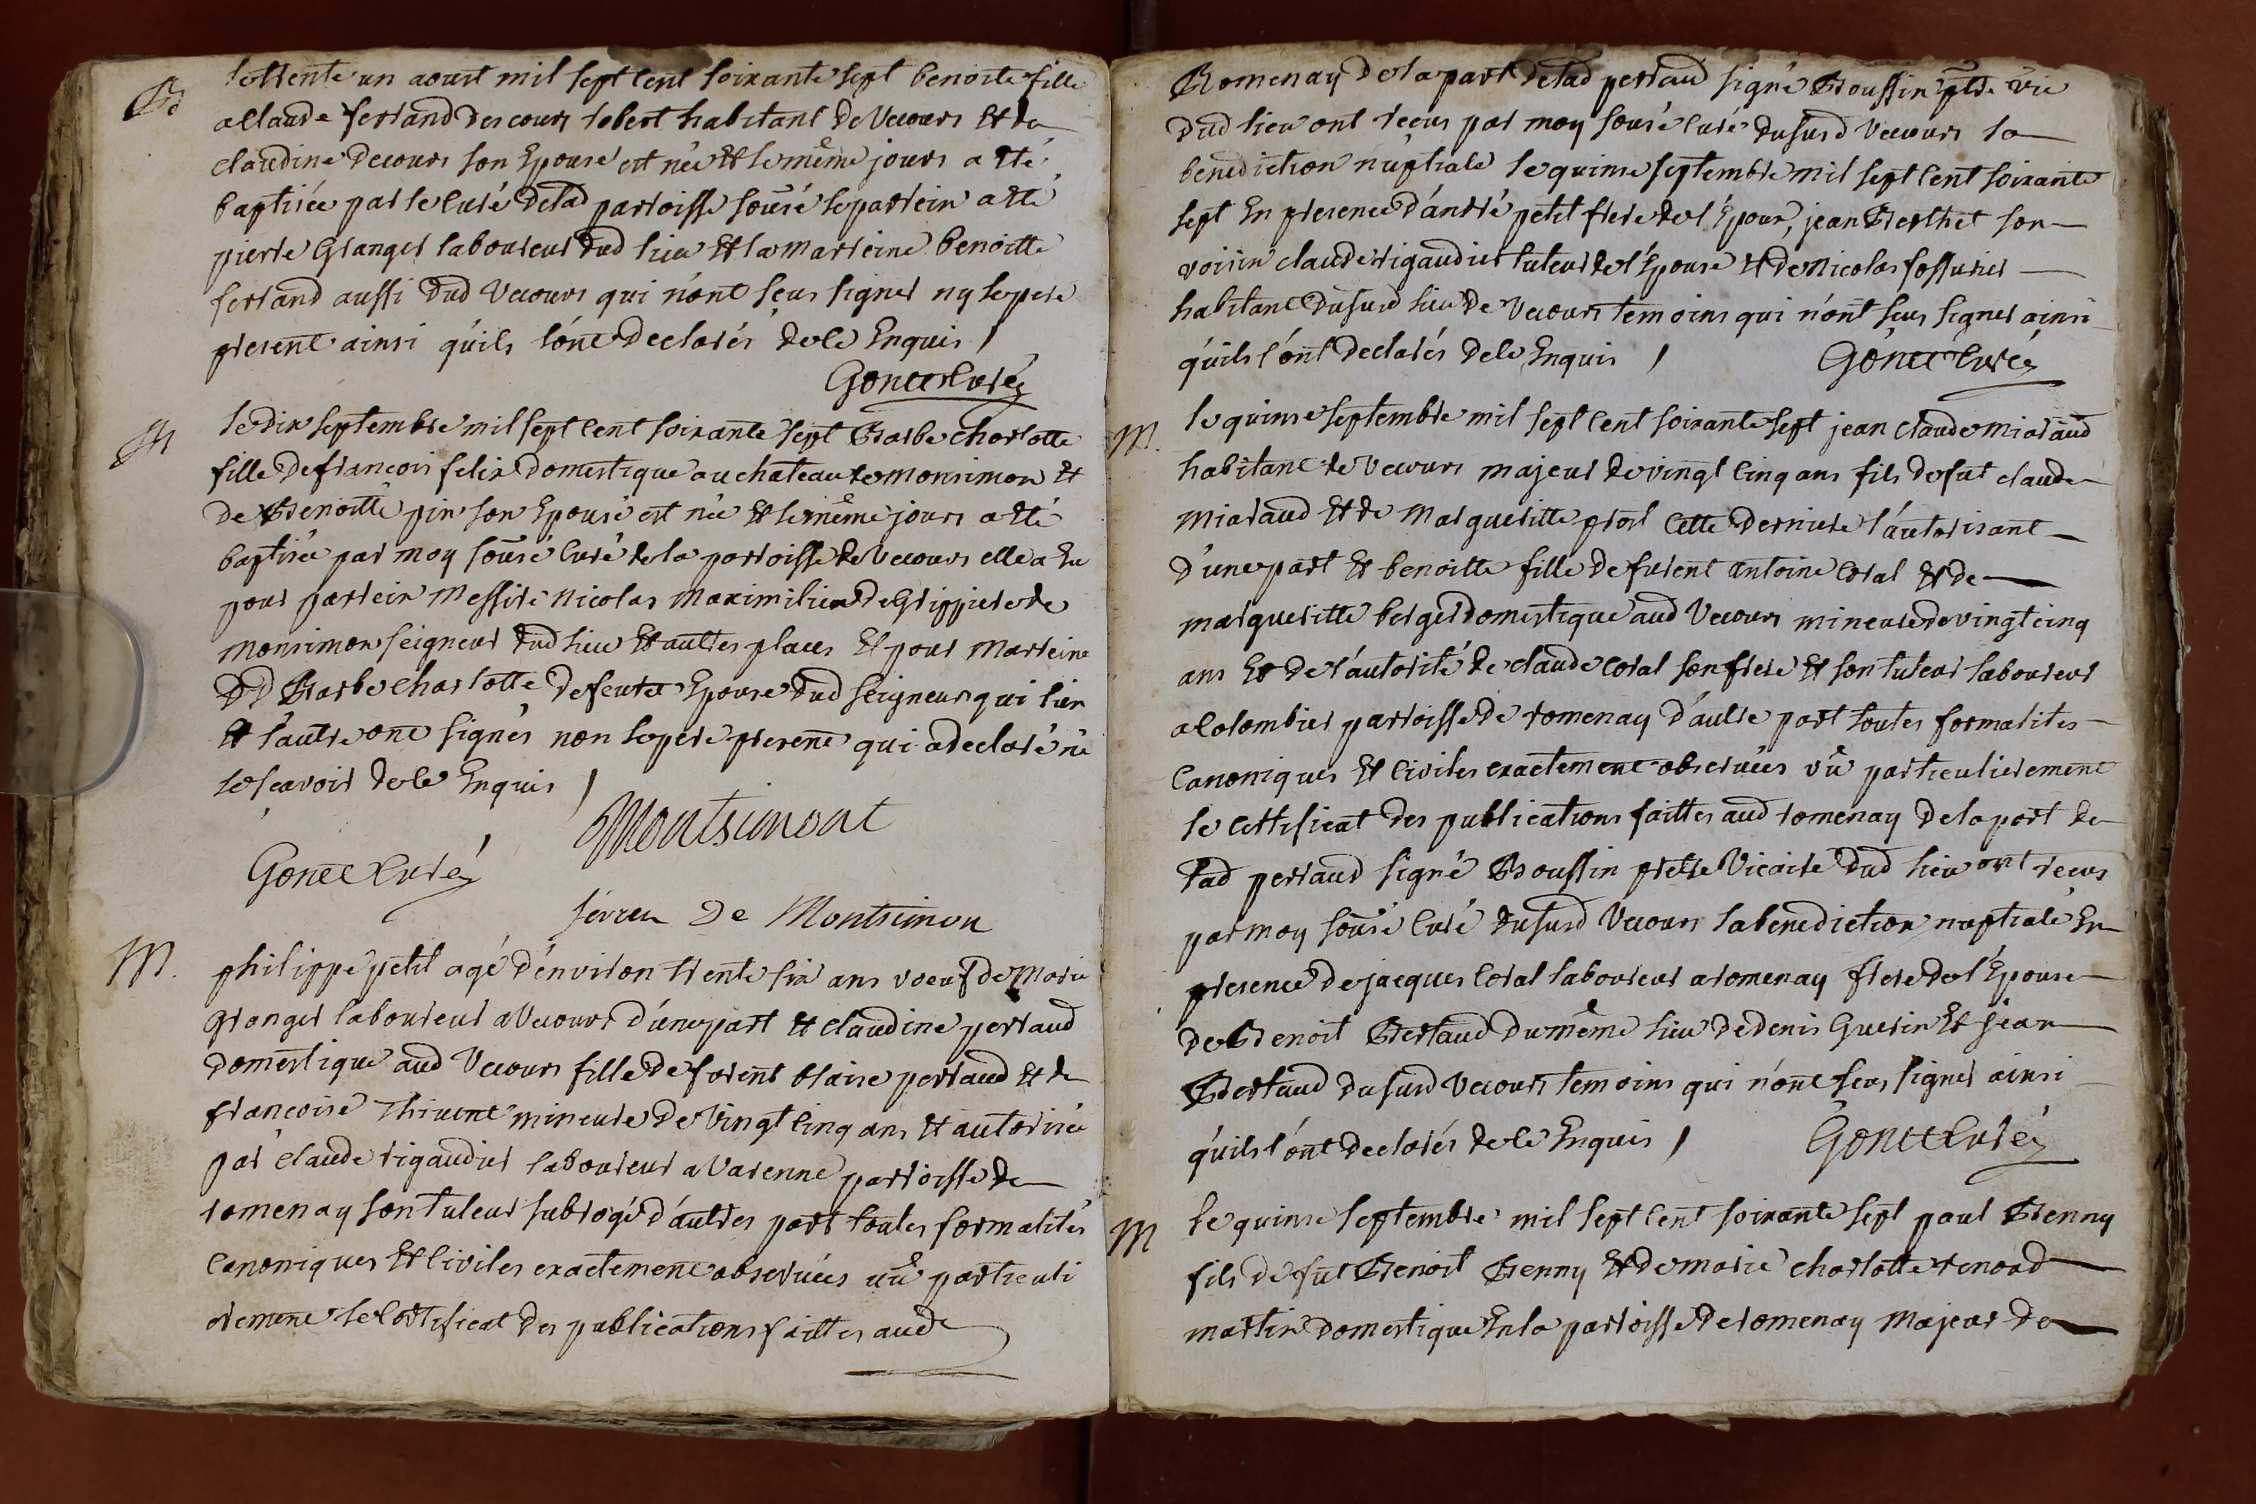 Bt
le trente un aoust mil sept cent soixante sept benoite fille
a Claude ferland des cours habitant de Vecours et de
claudine Decours son Epouse est née et le même jours a Eté
baptisée par le curé delad parroisse sousé le parrein a Eté
pierre Granger laboureur dud lieu et la Marreine benoitte
ferland aussi dud Vecours qui n'ont sçus signer ny le pere
present ainsi qu'ils l'ont declarés de ce Enquis /
Gonet Curé
B
le dix septembre mil sept cent soixante sept Barbe charlotte
fille de françois felix domestique au chateau de monsimon et
de Benoitte pin son Epouse est née et le même jours a Eté
baptisée par moy sousé curé de la parroisse de Vecours elle a Eu
pour parrein Messire Nicolas Maximilien de Grippiere de
monsimon seigneur dud lieu et autres places et pour Marreine
Dd Barbe charlotte Epouse dud seigneur qui l'un
et l'autre ont signés non le pere present qui a declaré ne
le scavoir de ce Enquis /
Montsimont
Gonet Curé
De Montsimon
M.
philippe petit agé d'environ trente six ans voeuf de Marie
Granger laboureur a Vecours d'une part et claudine perraud
domestique aud Vecours fille de furent blaise perraud et de
françoise Thivent mineure de Vingt cinq ans et autorisée
par claude rigaudier laboureur a Varenne parroisse de
romenay son tuteur subrogé d'autres part toutes formalités
canoniques et civiles exactement observées vû particuli
erement le Certificat des publications faittes aud
Romenay de la part de lad perraud signé Boussin ptre vic
dud lieu ont reçus par moy sousé curé dususd Vecours la
benediction nuptiale le quinse septembre mil sept cent soixante
sept En presence d'andré petit frere de l'Epoux, jean Berthet son
voisin claude rigaudier tuteur de l'Epouse et de Nicolas fossurier
habitant dususd lieu de Vecours temoins qui n'ont sçus signer ainsi
qu'ils l'ont declarés de ce Enquis /
Gonet Curé
M.
le quinse septembre mil sept cent soixante sept jean claude miaraud
habitant de Vecours majeur de vingt cinq ans fils de fut claude
Miaraud et de Marguerite prost cette derniere l'autorisant
d'une part et benoitte fille de furent antoine coral et de
marguerite berger domestique aud Vecours mineure de vingt cinq
ans et de l'autorité de claude coral son frere et son tuteur laboureur
a colombier parroisse de romenay d'autre part toutes formalites
canoniques et civiles exactement observées vû particulierement
le certificat des publications faittes aud romenay de la part de
lad perraud signé Boussin pretre Vicaire dud lieu ont reçus
par moy sousé curé dususd Vecours la benediction nuptiale En
presence de jacques coral laboureur a romenay frere de l'Epouse
de Benoit Bertaud du même lieu de denis Guerin et jean
Bertaud dususd Vecours temoins qui n'ont sçus signer ainsi
qu'ils l'ont declarés de ce Enquis /
Gonet Curé
M
le quinse septembre mil sept cent soixante sept paul Benny
fils de fut Benoit Benny et de marie charlotte renoud
martin domestique En la parroisse de romenay Majeur de